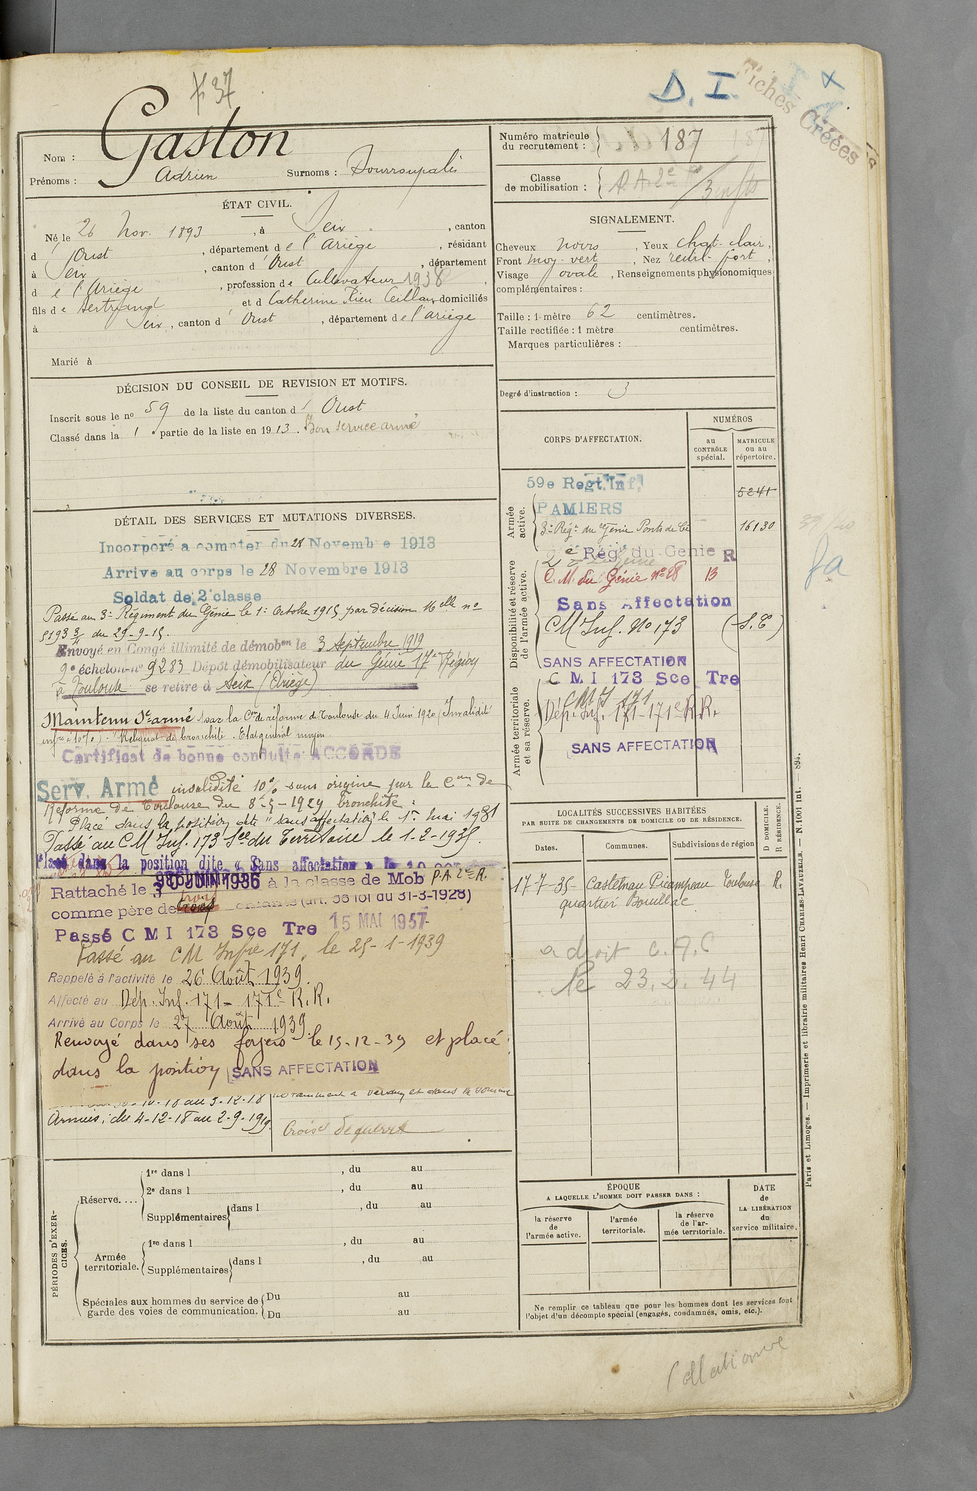 37
D. I.
Fiches Créées
Nom : Gaston
Prénoms : Adrien Surnoms :
Numéro matricule du recrutement : 187
Classe de mobilisation :
ÉTAT CIVIL.
Né le 26 Nov. 1893, à Seix, canton
d'Oust, département de l'Ariège, résidant
à Seix, canton d'Oust, département
de l'Ariège, profession de Cultivateur 1938,
fils de Bertrand et de Catherine Rieu Ceillau domiciliés
à Seix, canton d'Oust, département de l'ariège
Marié à
SIGNALEMENT.
Cheveux noirs, Yeux chat. clair,
Front moy. vert, Nez rectil. fort,
Visage ovale, Renseignements physionomiques
complémentaires :
Taille : 1 mètre 62 centimètres.
Taille rectifiée : 1 mètre centimètres.
Marques particulières :
Degré d'instruction : 3
DÉCISION DU CONSEIL DE REVISION ET MOTIFS.
Inscrit sous le no 59 de la liste du canton d'Oust
Classé dans la 1e partie de la liste en 1913. Bon service armé
DÉTAIL DES SERVICES ET MUTATIONS DIVERSES.
Incorporé à compter du 28 Novembre 1913
Arrivé au corps le 28 Novembre 1913
Soldat de 2e classe
Passé au 3e Régiment du Génie le 1er Octobre 1915 par décision Mlle no
51933 du 29-9-15.
Envoyé en Congé illimité de démobon le 3 Septembre 1919
9e échelon no 9283 Dépôt démobilisateur du Génie 17e Région
à Toulouse se retire à Seix (Ariège)
Maintenu S. armé par la Con de réforme de Toulouse du 4 Juin 1920, Invalidité
infre à 10%. Reliquat de bronchite. Etat général moyen
Certificat de bonne conduite ACCORDÉ
Serv. Armé invalidité 10% sans origine par la Con de
Réforme de Toulouse du 8-5-1929 bronchite.
Placé dans la position dite "sans affectation" le 1er mai 1931
Passé au C M Inf. 173 Sce du Territoire le 1-2-1935.
Placé dans la position dite « Sans affectation » le
Rattaché le JUIN 1936 à la classe de Mob P.A. 2e R.
comme père de trois enfants (art. 58 loi du 31-3-1928)
Passé C M I 173 Sce Tre 15 MAI 1937
Passé au CM Infre 171, le 25-1-1939
Rappelé à l'activité le 26 Août 1939
Affecté au Dép. Inf. 171 - 171e R.R.
Arrivé au Corps le 27 Août 1939
Renvoyé dans ses foyers le 15-12-39 et placé
dans la position SANS AFFECTATION
au 3-12-18 notamment à Verdun et dans la Somme
Armées : du 4-12-18 au 2-9-1919.
Croix de guerre
CORPS D'AFFECTATION.
NUMÉROS
au CONTRÔLE spécial.
MATRICULE ou au répertoire.
Armée active.
59e Regt. Inf. 5241
PAMIERS
3e Régt du Génie Ponts de Cé 16130
Disponibilité et réserve de l'armée active.
2e Rég. du Génie R
C. M. du Génie no 28 13
Sans Affectation
CM Inf. No 173 (S.T)
SANS AFFECTATION
Armée territoriale et sa réserve.
C M I 173 Sce Tre
CMI 171
Dép. Inf. 171-171e R.R.
SANS AFFECTATION
LOCALITÉS SUCCESSIVES HABITÉES
PAR SUITE DE CHANGEMENTS DE DOMICILE OU DE RÉSIDENCE.
Dates. Communes. Subdivisions de région
D DOMICILE.
R RÉSIDENCE.
17-7-35 Castelnau Picampeau Toulouse R.
quartier Bouillac
a droit C.A.C
le 23.2.44
PÉRIODES D'EXERCICES.
Réserve....
1re dans l , du au
2e dans l , du au
Supplémentaires dans l , du au
Armée territoriale.
1re dans l , du au
Supplémentaires dans l , du au
Spéciales aux hommes du service de garde des voies de communication.
Du au
Du au
ÉPOQUE
A LAQUELLE L'HOMME DOIT PASSER DANS :
la réserve de l'armée active.
l'armée territoriale.
la réserve de l'armée territoriale.
DATE de LA LIBÉRATION du service militaire.
Ne remplir ce tableau que pour les hommes dont les services font
l'objet d'un décompte spécial (engagés, condamnés, omis, etc.).
Paris et Limoges. — Imprimerie et librairie militaires Henri CHARLES-LAVAUZELLE. — N. 1001 int.
Collationné